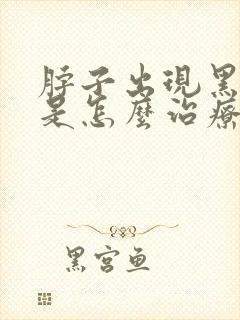 脖子出現黑
是怎麼治療
黑宮魚